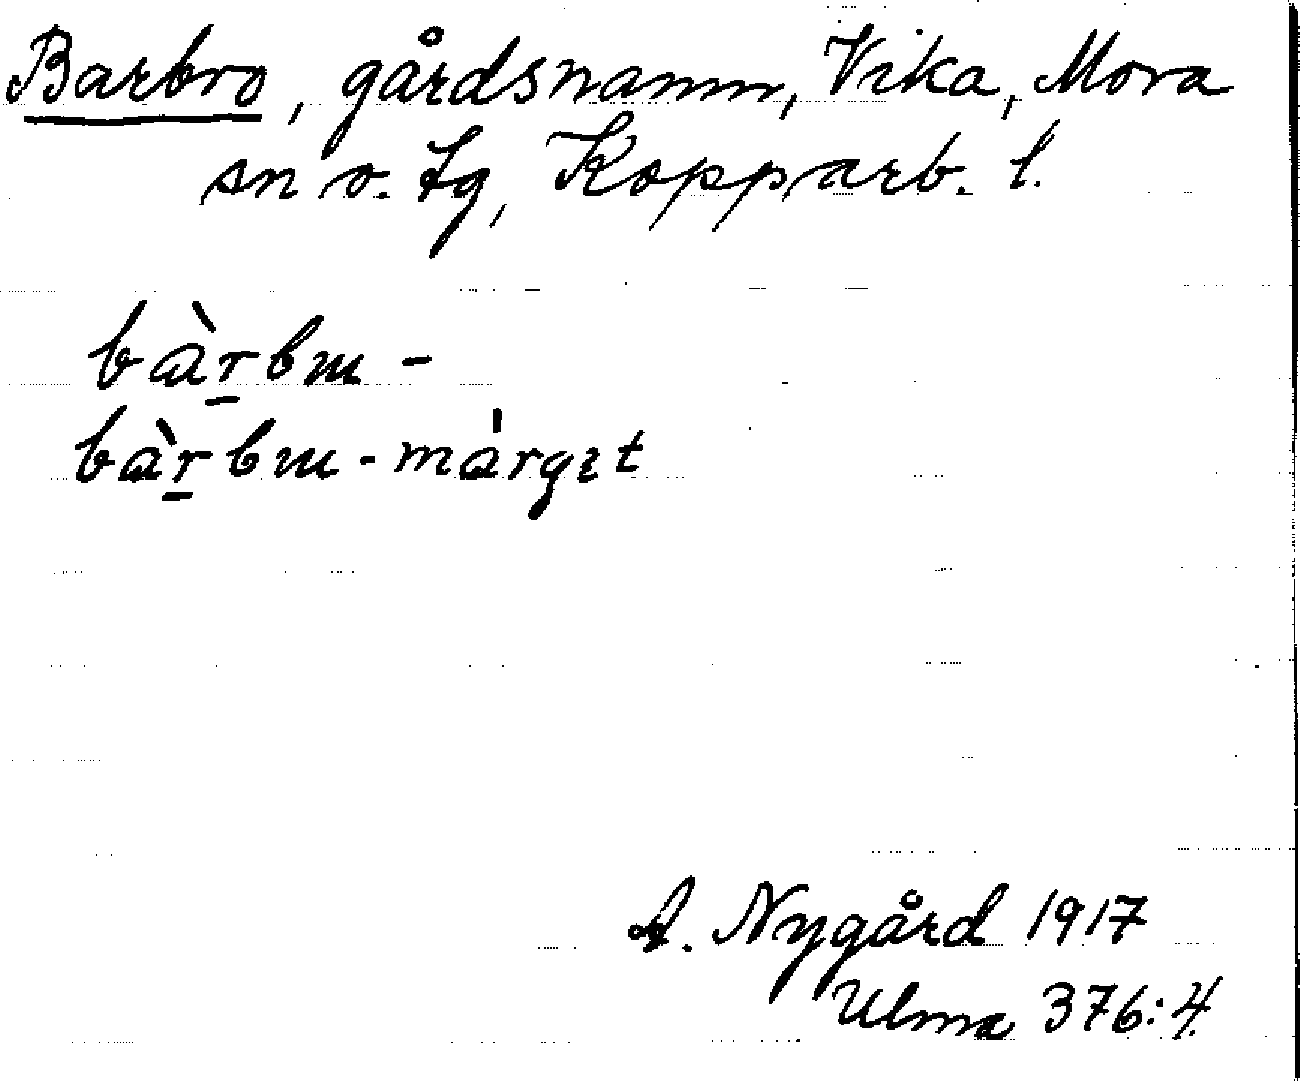 Barbro, gårdsnamn, Vika, Mora
sn o. tg, Kopparb. l.
bàr̠bm -
bàr̠bm-márgıt
A. Nygård 1917
Ulma 376:4.